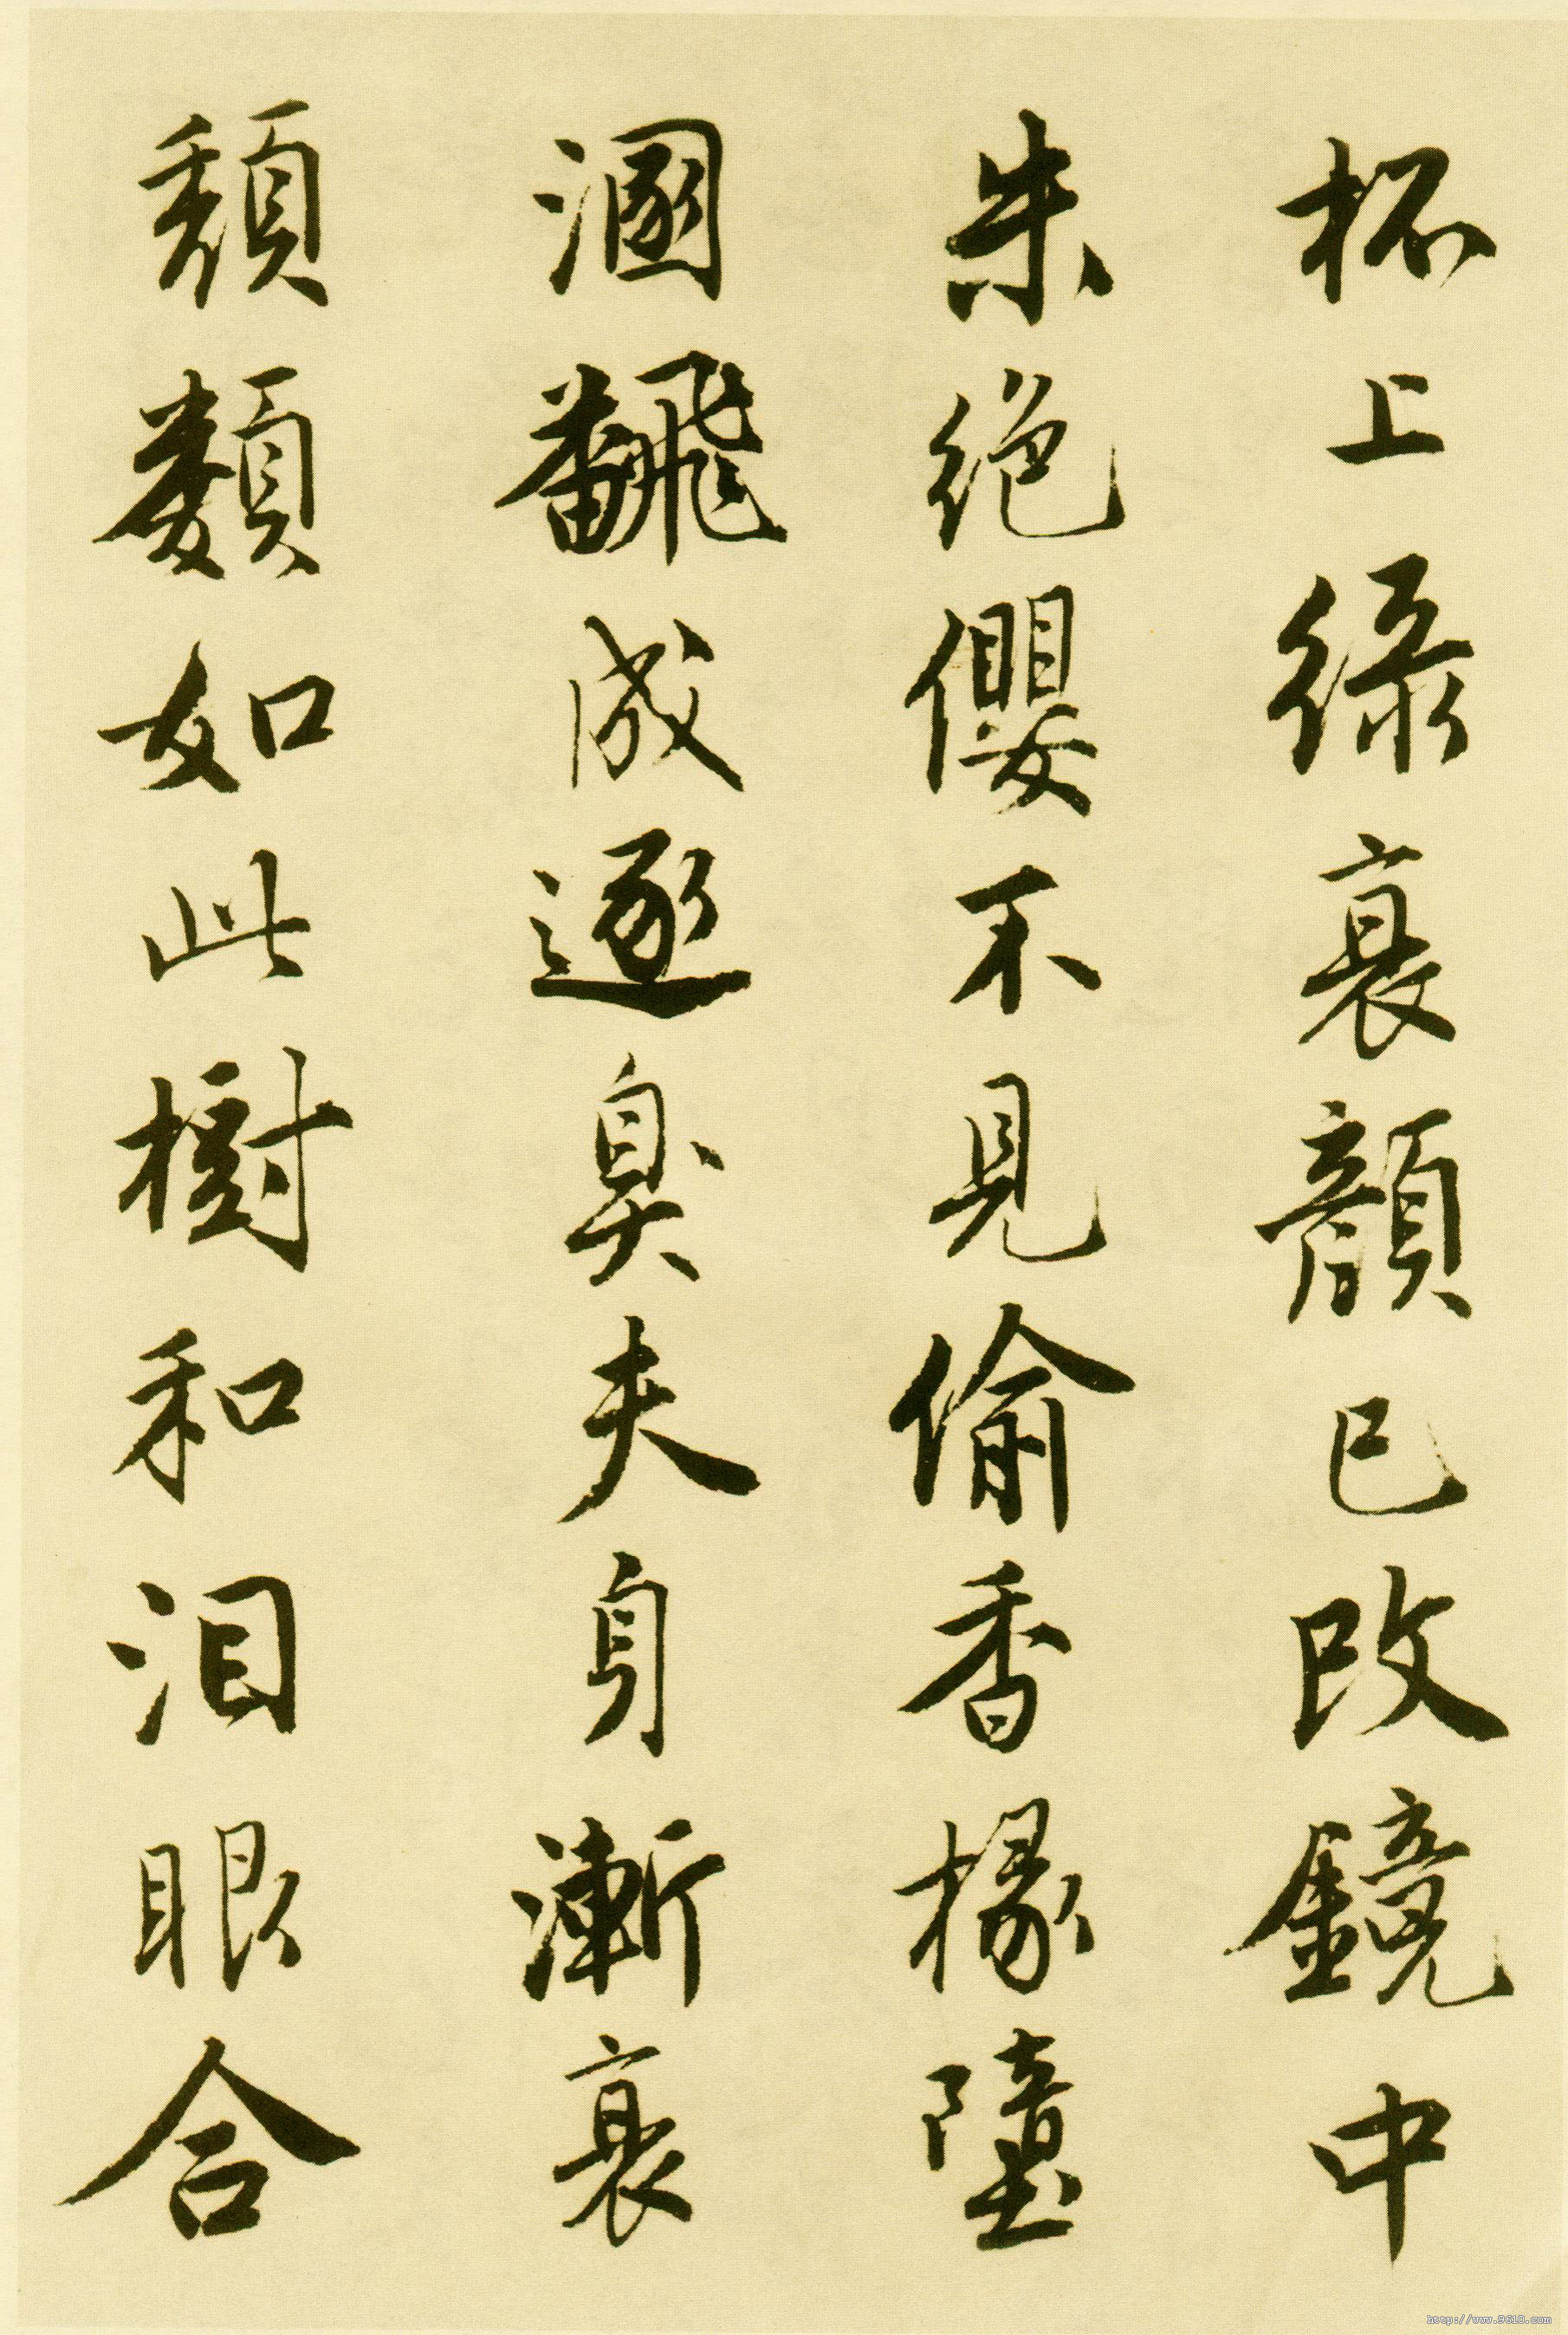 杯上綠衰顏已改鏡中
朱絕纓不見偷香椽墮
溷飜成逐臭夫身漸衰
頹類如此樹和泪眼合
http://www.9610.com